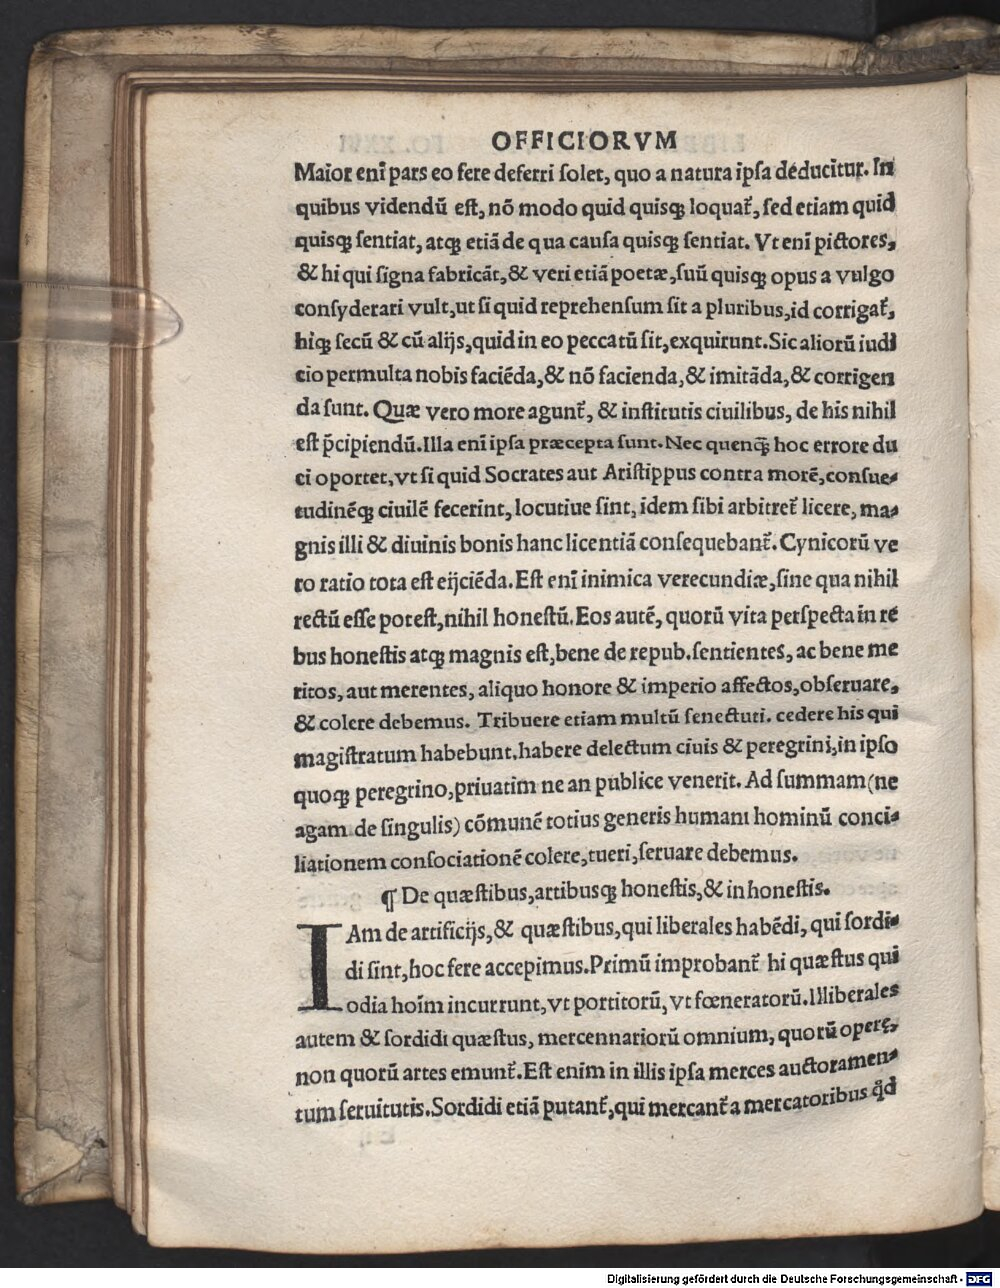 OFFICIORVM
Maior enī pars eo fere deferri ſolet, quo a natura ipſa deducitur. In
quibus videndū eſt, nō modo quid quisqꝫ loquat᷑, ſed etiam quid
quisqꝫ ſentiat, atqꝫ etiā de qua cauſa quisqꝫ ſentiat. Vt enī pictores,
& hi qui ſigna fabricāt, & veri etiā poetæ, ſuū quisqꝫ opus a vulgo
conſyderari vult, ut ſi quid reprehenſum ſit a pluribus, id corrigat᷑,
hiqꝫ ſecū & cū alijs, quid in eo peccatū ſit, exquirunt. Sic aliorū iudi
cio permulta nobis faciēda, & nō facienda, & imitāda, & corrigen
da ſunt. Quæ vero more agunt᷑, & inſtitutis ciuilibus, de his nihil
eſt p̄cipiendū. Illa enī ipſa præcepta ſunt. Nec quenqꝫ̄ hoc errore du
ci oportet, vt ſi quid Socrates aut Ariſtippus contra morē, conſue⸗
tudinēqꝫ ciuilē fecerint, locutiue ſint, idem ſibi arbitret᷑ licere, ma⸗
gnis illi & diuinis bonis hanc licentiā conſequebant᷑. Cynicorū ve
ro ratio tota eſt eijciēda. Eſt enī inimica verecundiæ, ſine qua nihil
rectū eſſe poteſt, nihil honeſtū. Eos autē, quorū vita perſpecta in re
bus honeſtis atqꝫ magnis eſt, bene de repub. ſentientes, ac bene me
ritos, aut merentes, aliquo honore & imperio affectos, obſeruare,
& colere debemus. Tribuere etiam multū ſenectuti. cedere his qui
magiſtratum habebunt. habere delectum ciuis & peregrini, in ipſo
quoqꝫ peregrino, priuatim ne an publice venerit. Ad ſummam (ne
agam de ſingulis) cōmunē totius generis humani hominū conci⸗
liationem conſociationē colere, tueri, ſeruare debemus.
¶ De quæſtibus, artibusqꝫ honeſtis, & in honeſtis.
IAm de artificijs, & quæſtibus, qui liberales habēdi, qui ſordi⸗
di ſint, hoc fere accepimus. Primū improbant᷑ hi quæſtus qui
odia hoīm incurrunt, vt portitorū, vt fœneratorū. Illiberales
autem & ſordidi quæſtus, mercennariorū omnium, quorū operę,
non quorū artes emunt᷑. Eſt enim in illis ipſa merces auctoramen⸗
tum ſeruitutis. Sordidi etiā putant᷑, qui mercant᷑ a mercatoribus qd̛
Digitalisierung gefördert durch die Deutsche Forschungsgemeinschaft - DFG